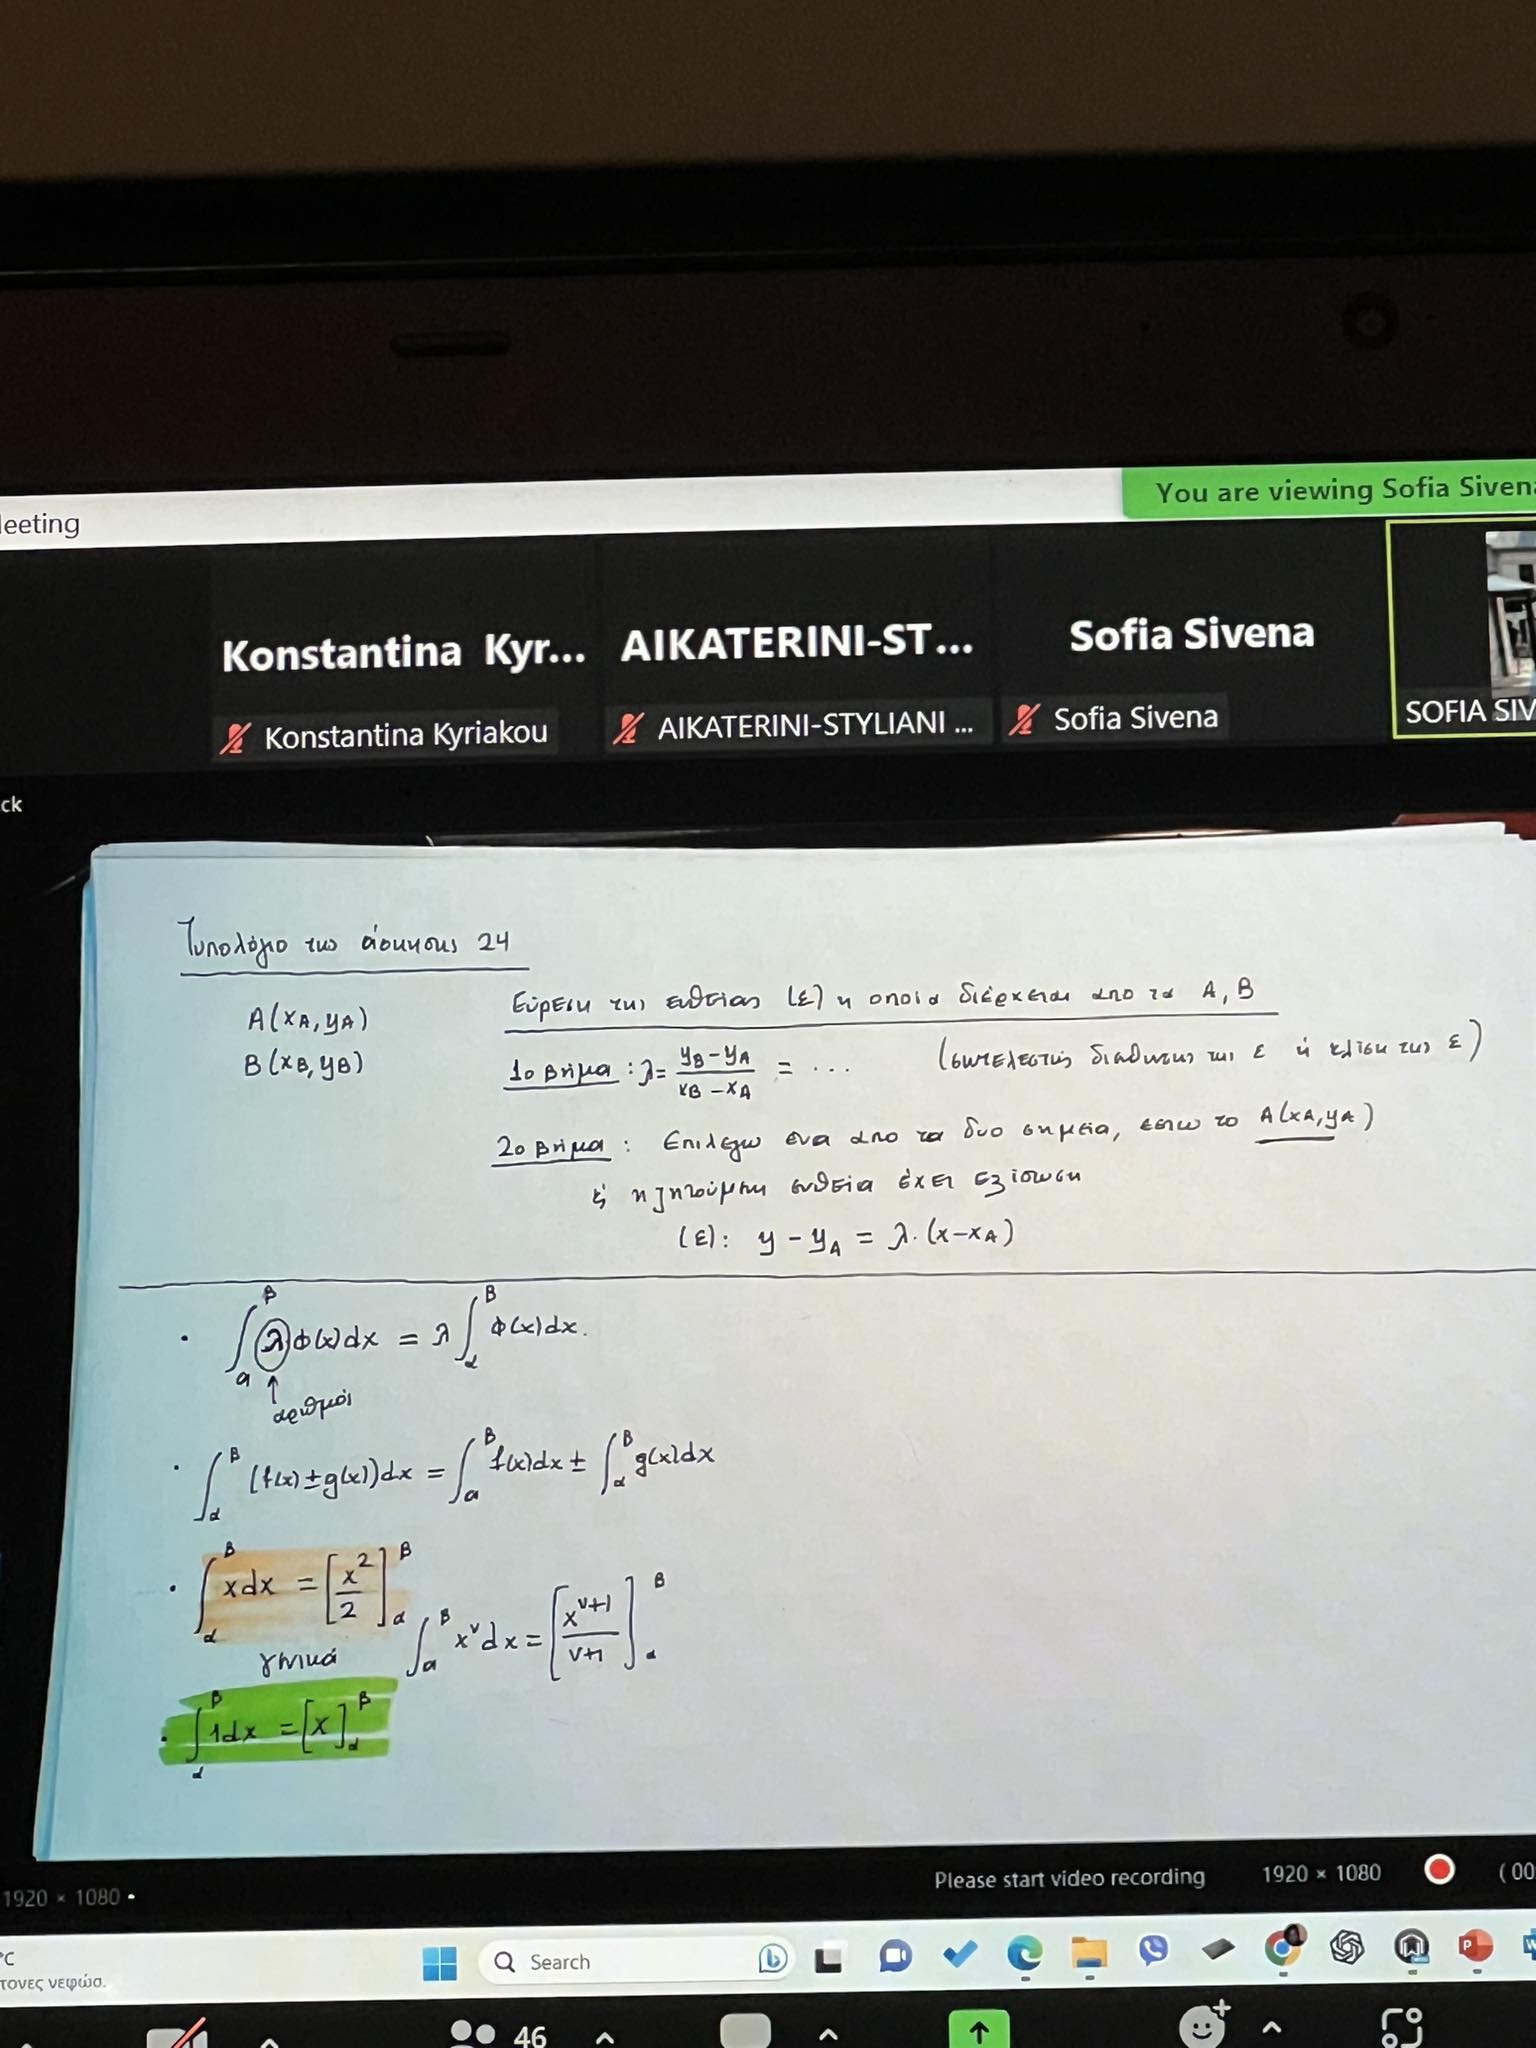 leeting
You are viewing Sofia Sivena
Konstantina Kyr...
AIKATERINI-ST...
Sofia Sivena
Konstantina Kyriakou
AIKATERINI-STYLIANI ...
Sofia Sivena
SOFIA SIV
ck
Τυπολόγιο της άσκησης 24
A(xA, yA)
B(xB, yB)
Εύρεση της ευθείας (ε) η οποία διέρχεται απο τα A, B
1ο βήμα : λ = (yB - yA)/(xB - xA) = ... (συντελεστής διεύθυνσης της ε ή κλίση της ε)
2ο βήμα : Επιλέγω ενα απο τα δυο σημεία, εστω το A(xA, yA)
& η ζητούμενη ευθεία έχει εξίσωση
(ε): y - yA = λ·(x - xA)
• ∫_α^β λφ(x)dx = λ ∫_α^β φ(x)dx.
↑
αριθμός
• ∫_α^β (f(x) ± g(x))dx = ∫_α^β f(x)dx ± ∫_α^β g(x)dx
• ∫_α^β xdx = [x²/2]_α^β
γενικά ∫_α^β x^ν dx = [x^(ν+1)/(ν+1)]_α^β
• ∫_α^β 1dx = [x]_α^β
Please start video recording 1920 × 1080 (00
1920 × 1080 •
°C
τονες νεφώσ.
Search
46